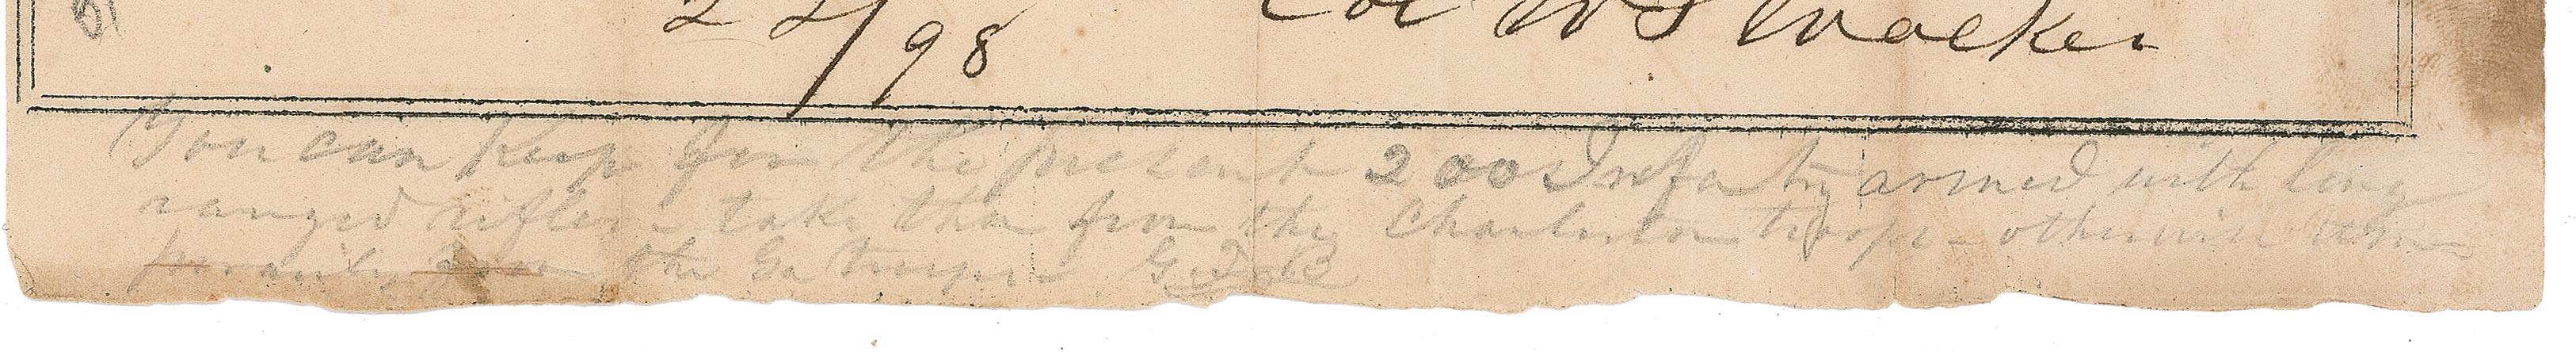 22/98 Col W S Walker
You can keep for the present 200 Infantry armed with long
ranged rifles - take them from the Charleston troops - otherwise tem-
porarily from the Ga troops G.T.B